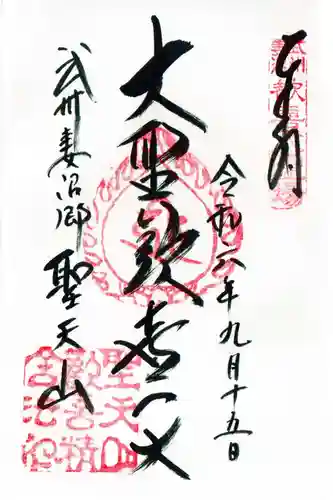 奉拝
令和六年九月十五日
大聖歓喜天
武州妻沼郷 聖天山
聖天山